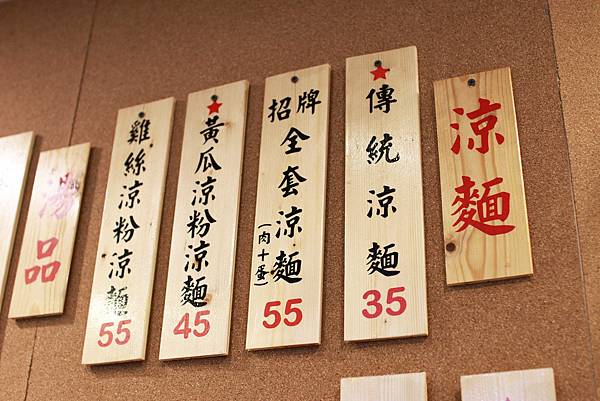 涼麵
★傳統涼麵
35
招牌全套涼麵
(肉+蛋)
55
★黃瓜涼粉涼麵
45
雞絲涼粉涼麵
55
湯品